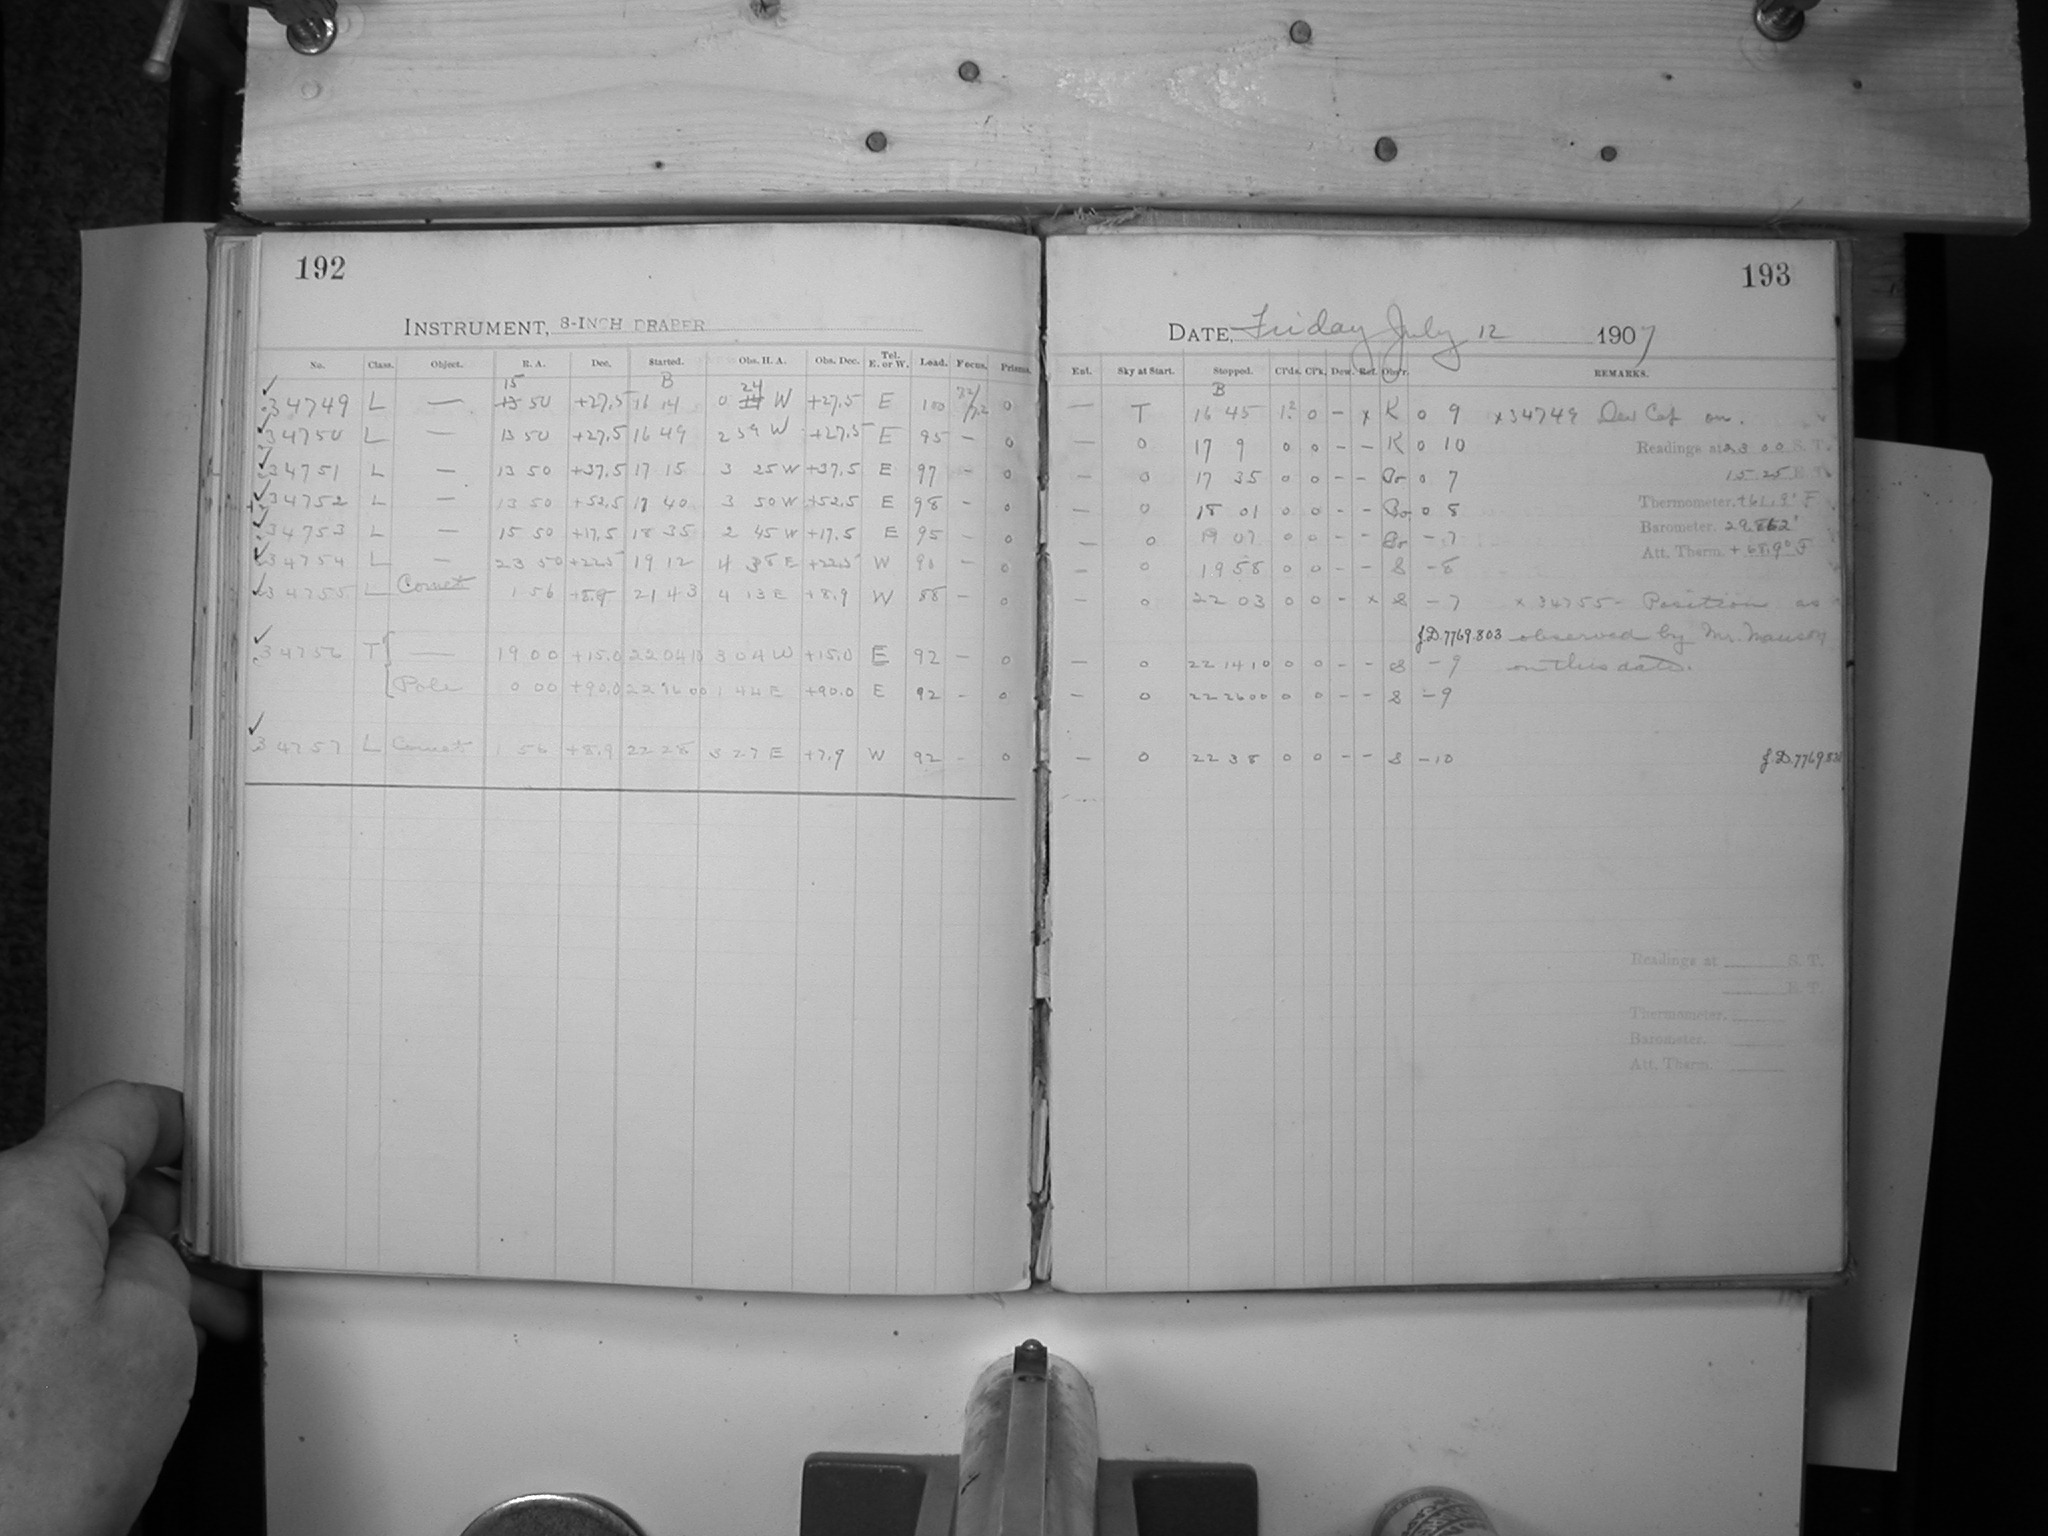 192
INSTRUMENT, 8-INCH DRAPER
No. Class. Object. R. A. Dec. Started. Obs. H. A. Obs. Dec. Tel. E. or W. Load. Focus. Prisms.
15 B 24
34749 L — 13 50 +27.5 16 14 0 14 W +27.5 E 100 0
34750 L — 13 50 +27.5 16 49 2 59 W +27.5 E 95 — 0
34751 L — 13 50 +37.5 17 15 3 25 W +37.5 E 97 — 0
34752 L — 13 50 +52.5 17 40 3 50 W +52.5 E 98 — 0
34753 L — 15 50 +17.5 18 35 2 45 W +17.5 E 95 — 0
34754 L — 23 50 +22.5 19 12 4 38 E +22.5 W 90 — 0
34755 L Comet 1 56 +8.9 21 43 4 13 E +8.9 W 88 — 0
34756 T — 19 00 +15.0 22 04 10 3 04 W +15.0 E 92 — 0
Pole 0 00 +90.0 22 16 00 1 44 E +90.0 E 92 — 0
34757 L Comet 1 56 +8.9 22 28 3 27 E +7.9 W 92 — 0
193
DATE, Friday July 12 1907
Ent. Sky at Start. Stopped. Cl'ds. Cl'k. Dew. Ref. Obs'r. REMARKS.
B
— T 16 45 1² 0 — x K 0 9 x34749 Dew Cap on.
— 0 17 9 0 0 — — K 0 10 Readings at 23 00 S. T.
— 0 17 35 0 0 — — Bo 0 7 15 25 E. T.
— 0 18 01 0 0 — — Bo 0 8 Thermometer. +61.9° F
— 0 19 07 0 0 — — Bo — 7 Barometer. 29.862
Att. Therm. +68.9° F
— 0 19 58 0 0 — — S — 8
— 0 22 03 0 0 — x S — 7 x 34755 — Position as
J.D. 7769.803 observed by Mr. Manson
— 0 22 14 10 0 0 — — S — 9 on this date.
— 0 22 26 00 0 0 — — S — 9
— 0 22 38 0 0 — — S — 10 J.D. 7769.831
Readings at S. T.
E. T.
Thermometer.
Barometer.
Att. Therm.